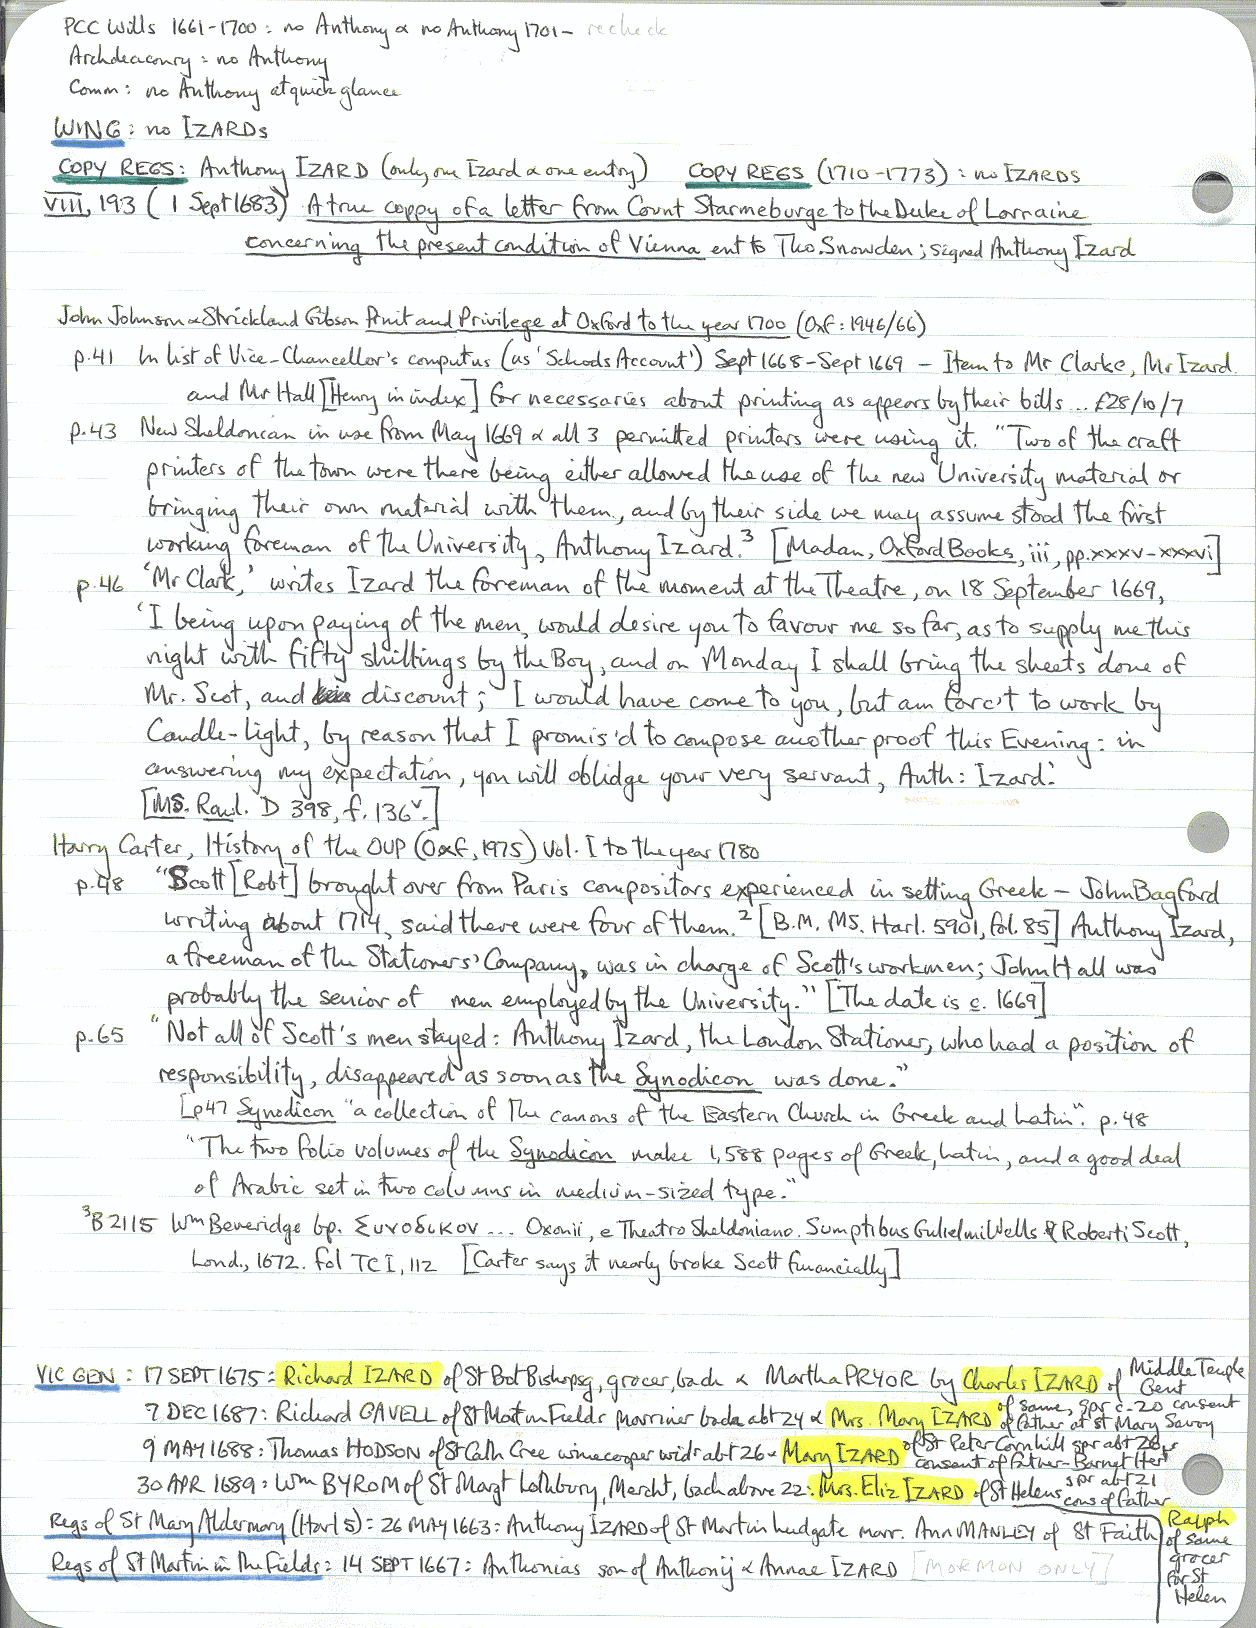 PCC Wills 1661-1700: no Anthony & no Anthony 1701- recheck
Archdeaconry: no Anthony
Comm: no Anthony at quick glance
WING: no IZARDs
COPY REGS: Anthony IZARD (only one Izard & one entry) COPY REGS (1710-1773): no IZARDS
VIII, 193 (1 Sept 1683) A true coppy of a letter from Count Starmeburge to the Duke of Lorraine
concerning the present condition of Vienna ent to Tho. Snowden; signed Anthony Izard
John Johnson & Strickland Gibson Print and Privilege at Oxford to the year 1700 (Oxf: 1946/66)
p.41 In list of Vice-Chancellor's computus (as 'Schools Account') Sept 1668-Sept 1669 - Item to Mr Clarke, Mr Izard
and Mr Hall [Henry in index] for necessaries about printing as appears by their bills ... £28/10/7
p.43 New Sheldonian in use from May 1669 & all 3 permitted printers were using it. "Two of the craft
printers of the town were there being either allowed the use of the new University material or
bringing their own material with them, and by their side we may assume stood the first
working foreman of the University, Anthony Izard.³ [Madan, Oxford Books, iii, pp.xxxv-xxxvi]
p.46 'Mr Clark,' writes Izard the foreman of the moment at the Theatre, on 18 September 1669,
'I being upon paying of the men, would desire you to favour me so far, as to supply me this
night with fifty shillings by the Boy, and on Monday I shall bring the sheets done of
Mr. Scot, and discount; I would have come to you, but am forc't to work by
Candle-Light, by reason that I promis'd to compose another proof this Evening: in
answering my expectation, you will oblidge your very servant, Auth: Izard.'
[MS. Rawl. D 398, f. 136ᵛ.]
Harry Carter, History of the OUP (Oxf, 1975) Vol. I to the year 1780
p.48 "Scott [Robt] brought over from Paris compositors experienced in setting Greek - John Bagford
writing about 1714, said there were four of them.² [B.M. MS. Harl. 5901, fol. 85] Anthony Izard,
a freeman of the Stationers' Company, was in charge of Scott's workmen; John Hall was
probably the senior of men employed by the University." [The date is c. 1669]
p.65 "Not all of Scott's men stayed: Anthony Izard, the London Stationer, who had a position of
responsibility, disappeared as soon as the Synodicon was done."
[p47 Synodicon "a collection of The canons of the Eastern Church in Greek and Latin". p.48
"The two folio volumes of the Synodicon make 1,588 pages of Greek, Latin, and a good deal
of Arabic set in two columns in medium-sized type."
³B2115 Wm Beveridge bp. Συνοδικον ... Oxonii, e Theatro Sheldoniano. Sumptibus Gulielmi Wells & Roberti Scott,
Lond., 1672. fol TC I, 112 [Carter says it nearly broke Scott financially]
VIC GEN: 17 SEPT 1675: Richard IZARD of St Bot Bishopsg, grocer, bach & Martha PRYOR by Charles IZARD of Middle Temple Gent
7 DEC 1687: Richard CAVELL of St Mart in Fields marriner bach abt 24 & Mrs. Mary IZARD of same, spr c.20 consent of father at St Mary Savoy
9 MAY 1688: Thomas HODSON of St Cath Cree winecooper widr abt 26 & Mary IZARD of St Peter Cornhill spr abt 28 consent of father Barnet Hert
30 APR 1689: Wm BYROM of St Margt Lothbury, Marcht, bach above 22: Mrs. Eliz IZARD of St Helens spr abt 21 cons of father
Ralph of same grocer for St Helen
Regs of St Mary Aldermary (Harl 5): 26 MAY 1663: Anthony IZARD of St Martin Ludgate marr. Ann MANLEY of St Faith
Regs of St Martin in The Fields: 14 SEPT 1667: Anthonias son of Anthonij & Annae IZARD [MORMON ONLY]